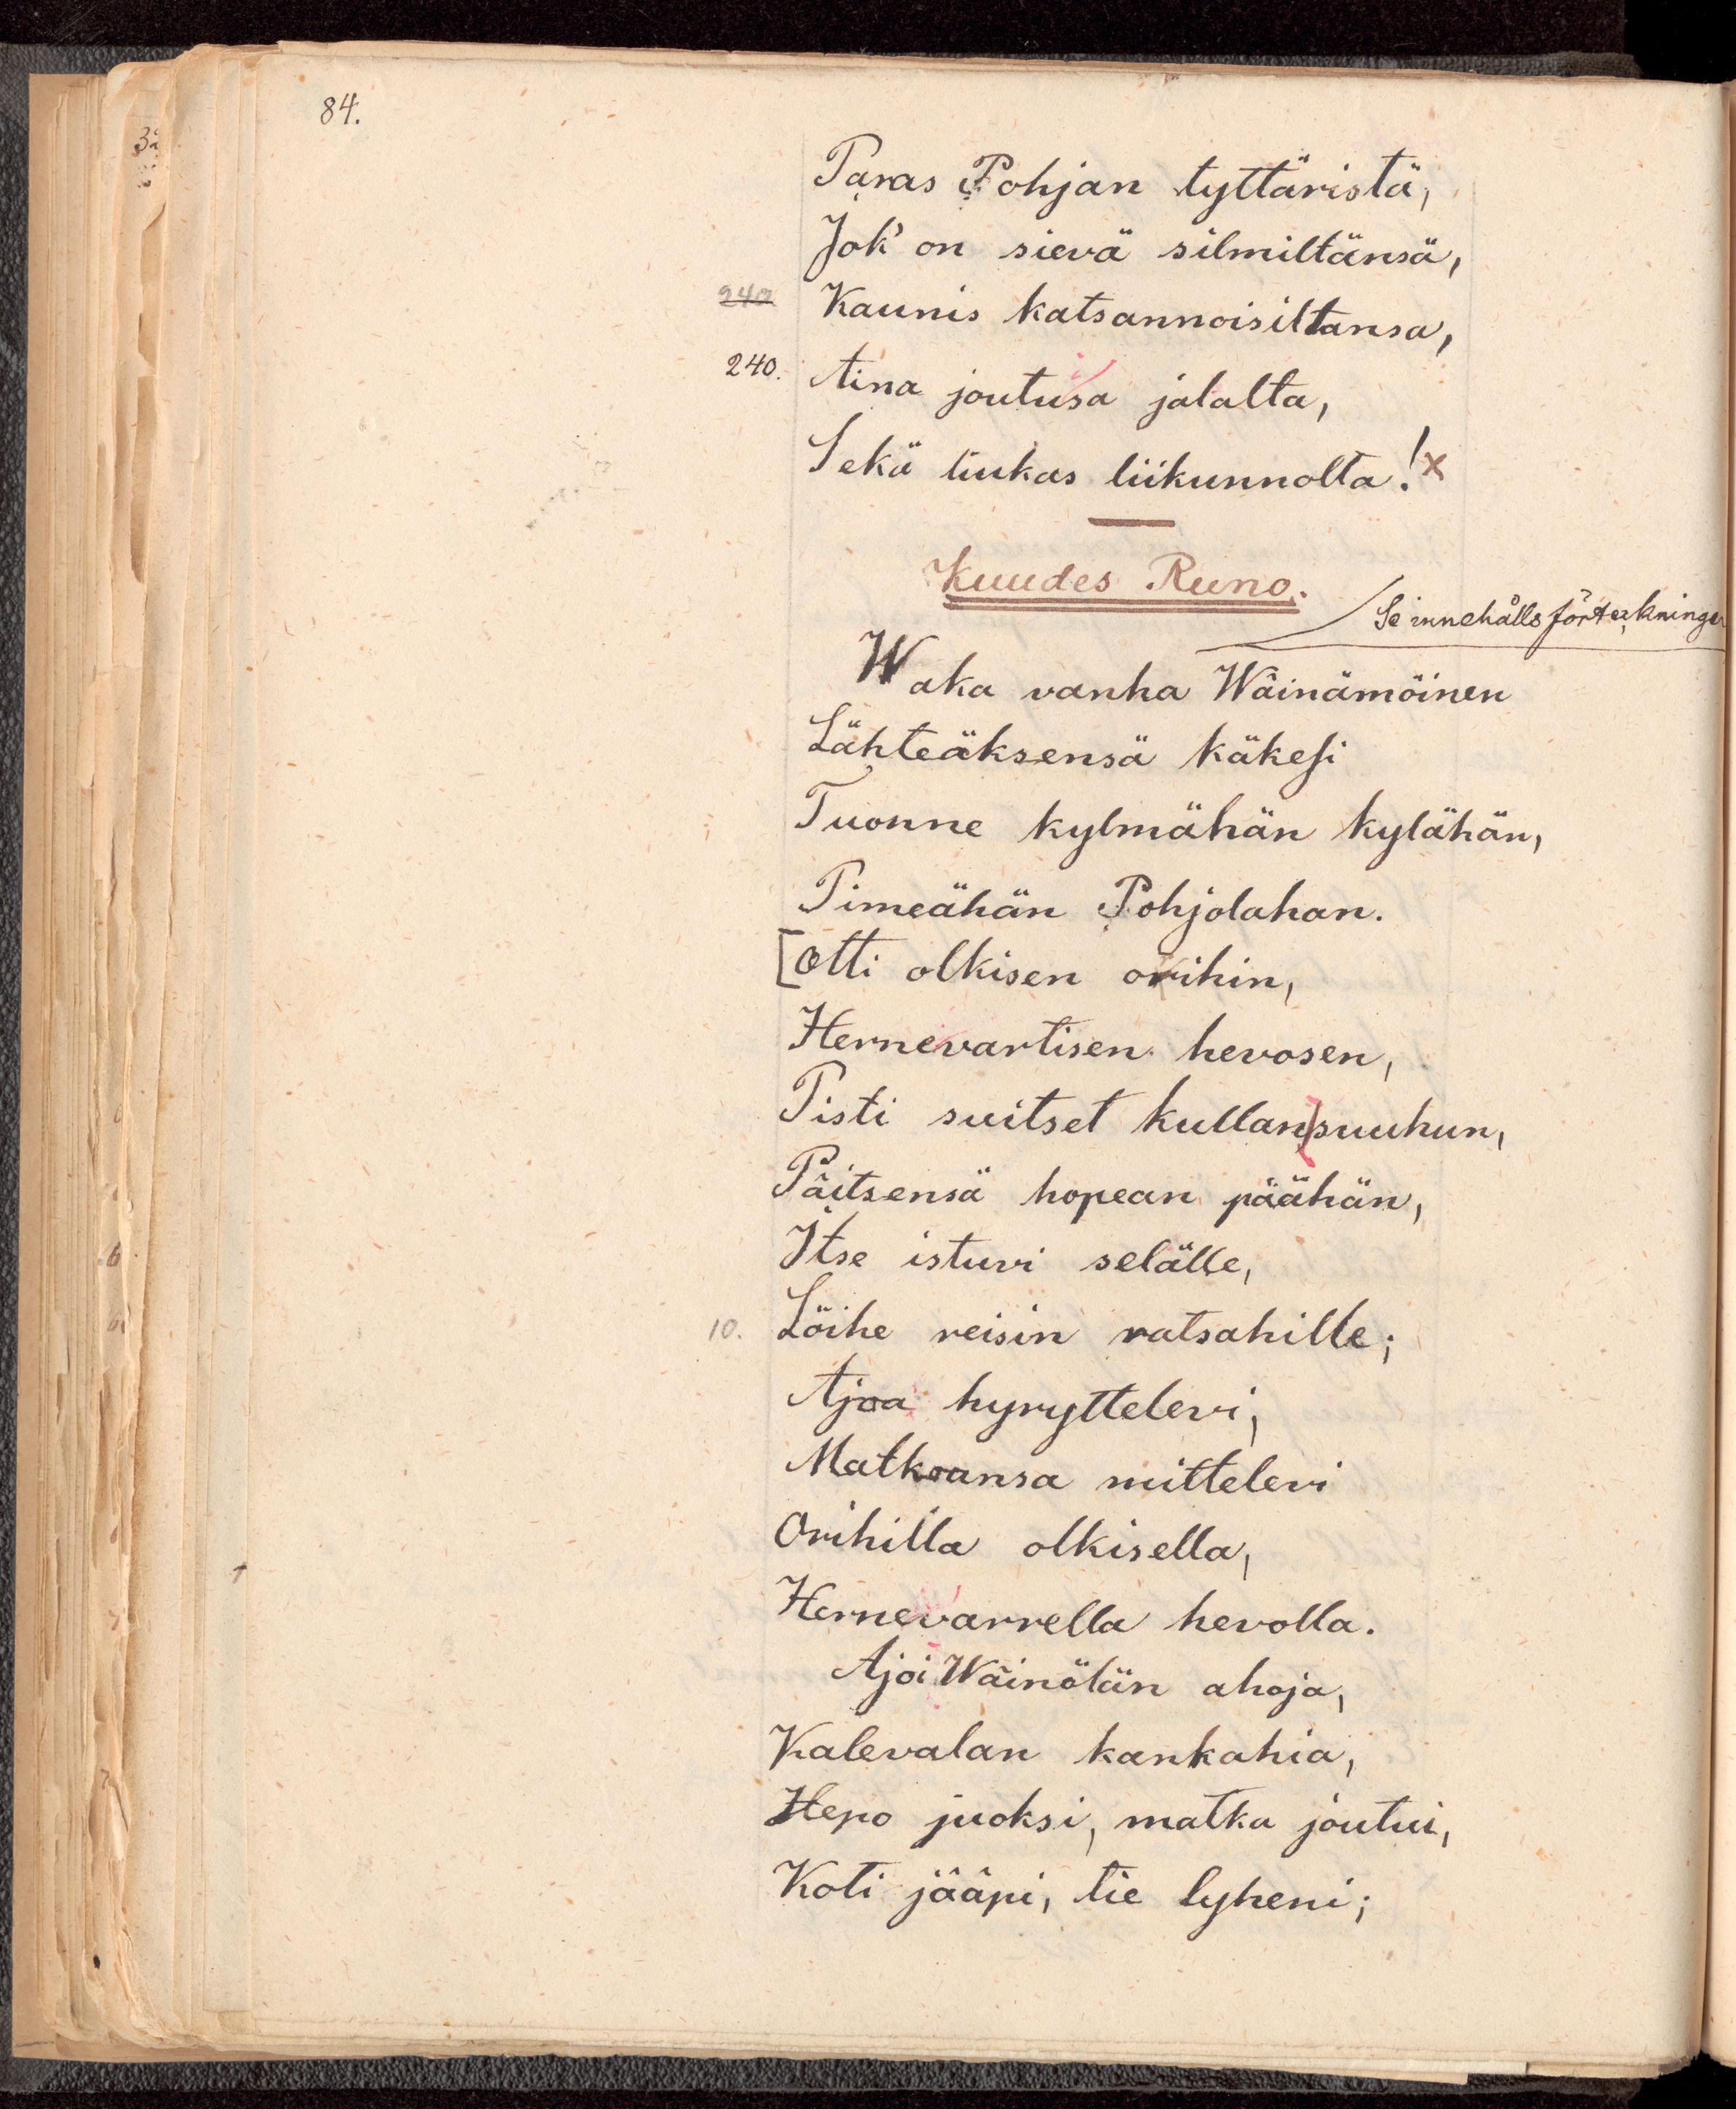 84.
Paras Pohjan tyttäristä,
Jok' on sievä silmiltänsä,
240 Kaunis katsannoisiltansa,
240. Aina joutuisa jalalta,
Sekä liukas liikunnolta! x
Kuudes Runo.
Se innehållsförteckningen
Waka vanha Wäinämöinen
Lähteäksensä käkesi
Tuonne kylmähän kylähän,
Pimeähän Pohjolahan.
[Otti olkisen orihin,
Hernevartisen hevosen,
Pisti suitset kullan suuhun,
Päitsensä hopean päähän,
Itse istuvi selälle,
10. Löihe reisin ratsahille;
Ajoa hyryttelevi,
Matkoansa mittelevi
Orihilla olkisella,
Hernevarrella hevolla.
Ajoi Wäinölän ahoja,
Kalevalan kankahia,
Hepo juoksi, matka joutui,
Koti jääpi, tie lyheni;